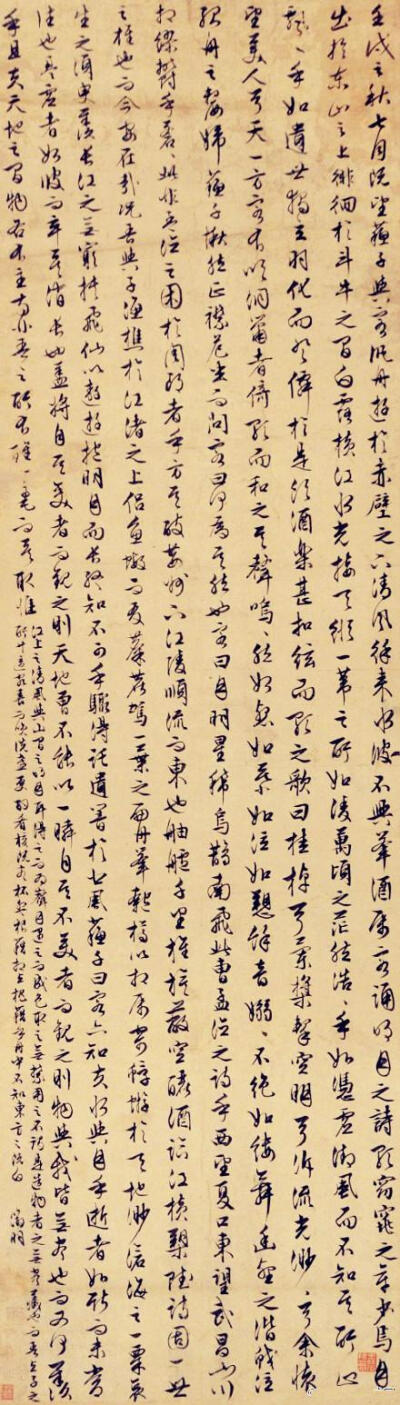 壬戌之秋七月既望蘇子與客泛舟遊於赤壁之下清風徐來水波不興舉酒属客誦明月之詩歌窈窕之章少焉月
出於東山之上徘徊於斗牛之間白露横江水光接天縱一葦之所如凌萬頃之茫然浩〻乎如憑虚御風而不知其所止
飄〻乎如遺世獨立羽化而登僊於是飲酒樂甚扣舷而歌之歌曰桂棹兮蘭槳擊空明兮泝流光渺〻兮余懷
望美人兮天一方客有吹洞簫者倚歌而和之其聲嗚〻然如怨如慕如泣如愬餘音嫋〻不絶如縷舞幽壑之潛蛟泣
孤舟之嫠婦蘇子愀然正襟危坐而問客曰何為其然也客曰月明星稀烏鵲南飛此曹孟德之詩乎西望夏口東望武昌山川
相繆鬱乎蒼〻此非孟德之困於周郎者乎方其破荆州下江陵順流而東也舳艫千里旌旗蔽空釃酒臨江横槊賦詩固一世
之雄也而今安在哉况吾與子漁樵於江渚之上侣魚蝦而友麋鹿駕一葉之扁舟舉匏樽以相属寄蜉蝣於天地渺滄海之一粟哀
生之須臾羡長江之無窮挾飛仙以遨遊抱明月而長終知不可乎驟得託遺響於悲風蘇子曰客亦知夫水與月乎逝者如斯而未嘗
往也盈虚者如彼而卒莫消長也蓋將自其變者而觀之則天地曾不能以一瞬自其不變者而觀之則物與我皆無盡也而又何羡
乎且夫天地之間物各有主苟非吾之所有雖一毫而莫取惟
江上之清風與山間之明月耳得之而為聲目遇之而成色取之無禁用之不竭是造物者之無盡藏也而吾與子之
所共食客喜而笑洗盞更酌肴核既盡杯盤狼藉相與枕藉乎舟中不知東方之既白 徵明